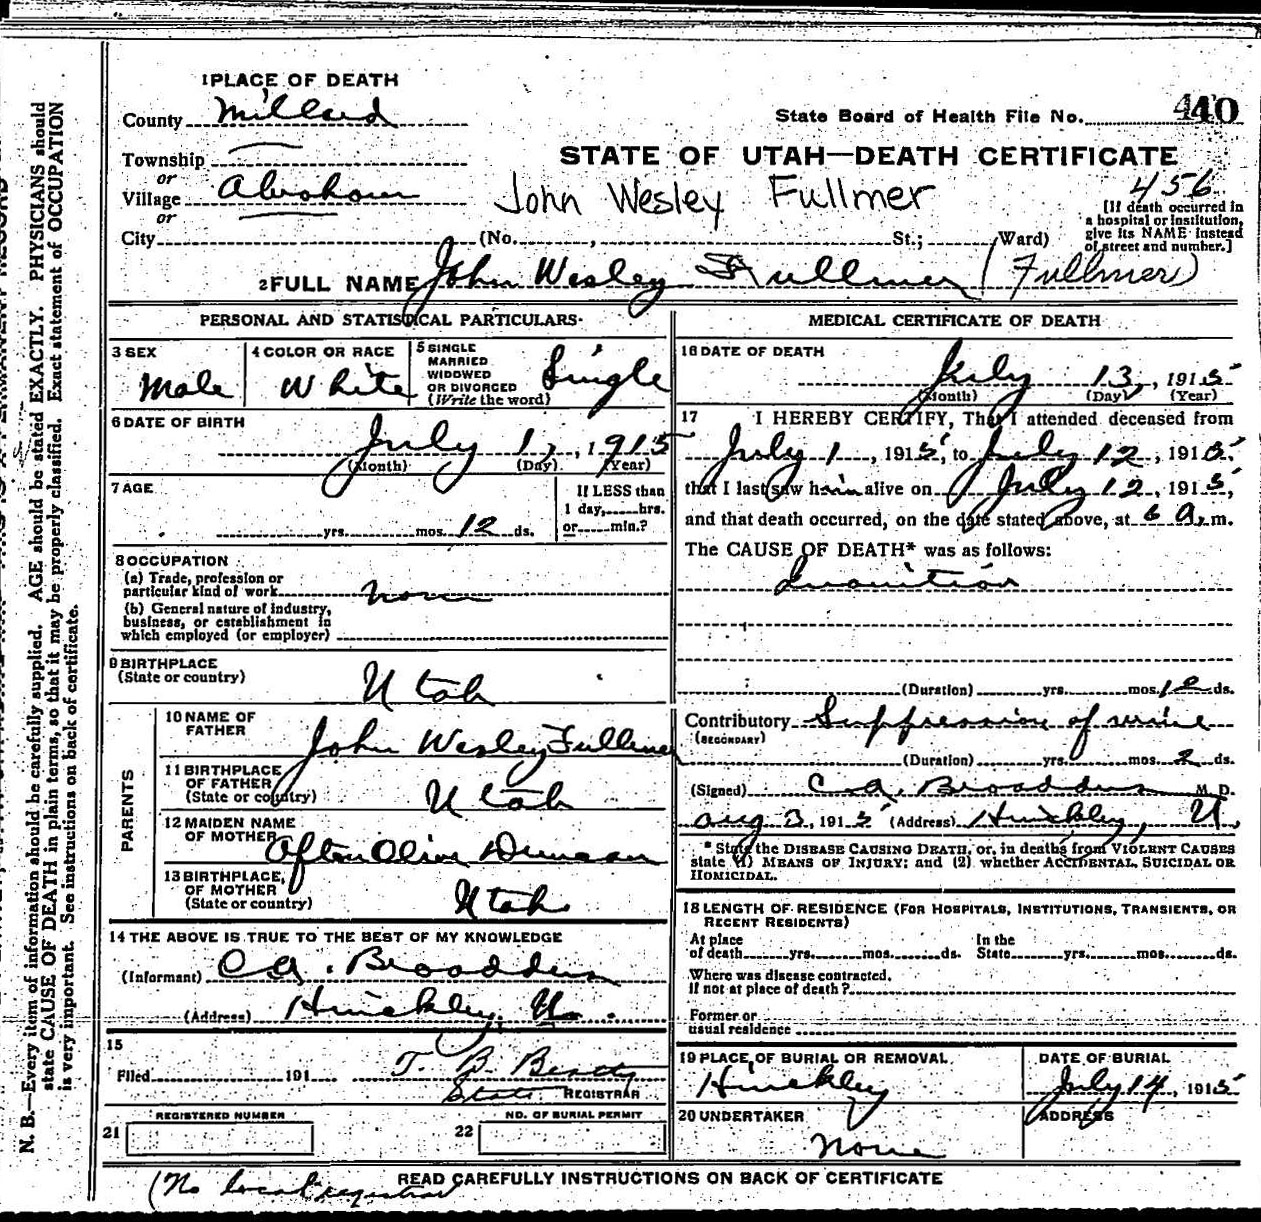 1 PLACE OF DEATH
County Millard
State Board of Health File No. 440
Township
or
Village Abraham
or
City (No. , St.; Ward)
STATE OF UTAH—DEATH CERTIFICATE
John Wesley Fullmer
456
[If death occurred in
a hospital or institution,
give its NAME instead
of street and number.]
2 FULL NAME John Wesley Fullmer (Fullmer)
PERSONAL AND STATISTICAL PARTICULARS
3 SEX
Male
4 COLOR OR RACE
White
5 SINGLE
MARRIED
WIDOWED
OR DIVORCED
(Write the word)
Single
6 DATE OF BIRTH
July 1, 1915
(Month) (Day) (Year)
7 AGE
yrs. mos. 12 ds.
If LESS than
1 day, hrs.
or min.?
8 OCCUPATION
(a) Trade, profession or
particular kind of work none
(b) General nature of industry,
business, or establishment in
which employed (or employer)
9 BIRTHPLACE
(State or country)
Utah
PARENTS
10 NAME OF
FATHER
John Wesley Fullmer
11 BIRTHPLACE
OF FATHER
(State or country)
Utah
12 MAIDEN NAME
OF MOTHER
Afton Olive Duncan
13 BIRTHPLACE,
OF MOTHER
(State or country)
Utah
14 THE ABOVE IS TRUE TO THE BEST OF MY KNOWLEDGE
(Informant) C.A. Broaddus
(Address) Hinckley, U.
15
Filed 191
T. B. Beatty
State REGISTRAR
REGISTERED NUMBER
NO. OF BURIAL PERMIT
21
22
MEDICAL CERTIFICATE OF DEATH
16 DATE OF DEATH
July 13, 1915
(Month) (Day) (Year)
17 I HEREBY CERTIFY, That I attended deceased from
July 1, 1915, to July 12, 1915,
that I last saw him alive on July 12, 1915,
and that death occurred, on the date stated above, at 6 a.m.
The CAUSE OF DEATH* was as follows:
Inanition
(Duration) yrs. mos. 12 ds.
Contributory Suppression of urine
(SECONDARY)
(Duration) yrs. mos. 2 ds.
(Signed) C.A. Broaddus M.D.
Aug 3, 1915 (Address) Hinckley, U.
* State the DISEASE CAUSING DEATH, or, in deaths from VIOLENT CAUSES
state (1) MEANS OF INJURY; and (2) whether ACCIDENTAL, SUICIDAL OR
HOMICIDAL.
18 LENGTH OF RESIDENCE (FOR HOSPITALS, INSTITUTIONS, TRANSIENTS, OR
RECENT RESIDENTS)
At place
of death yrs. mos. ds.
In the
State yrs. mos. ds.
Where was disease contracted,
if not at place of death?
Former or
usual residence
19 PLACE OF BURIAL OR REMOVAL
Hinckley
DATE OF BURIAL
July 14, 1915
20 UNDERTAKER
none
ADDRESS
(No local registrar
READ CAREFULLY INSTRUCTIONS ON BACK OF CERTIFICATE
N. B.—Every item of information should be carefully supplied. AGE should be stated EXACTLY. PHYSICIANS should
state CAUSE OF DEATH in plain terms, so that it may be properly classified. Exact statement of OCCUPATION
is very important. See instructions on back of certificate.